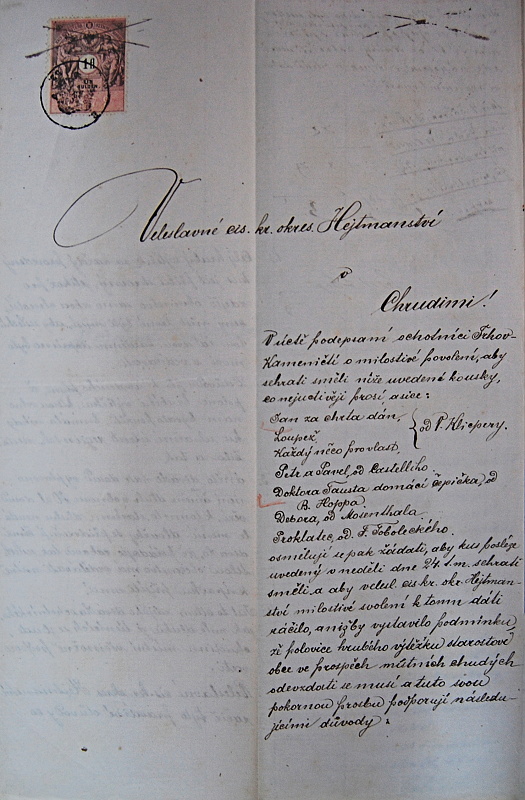 Veleslavné cis. kr. okres. Hejtmanství
v
Chrudimi!
V úctě podepsaní ochotníci Trhov-
Kameničtí o milostivé povolení, aby
sehrati směli níže uvedené kousky,
co nejuctivěji prosí, a sice:
Jan za chrta dán,
Loupež,
Každý něco pro vlast,
od V. Klicpery.
Petr a Pavel, od Castelliho
Doktora Fausta domácí čepička, od
B. Hoppa
Debora, od Mosenthala
Proklatec, od. F. Tobolického.
osmělují se pak žádati, aby kus posléze
uvedený v neděli dne 24. t.m. sehrati
směli a aby velesl. cís. kr. okr. Hejtman-
ství milostivé svolení k tomu dáti
ráčilo, anižby vystavilo podmínku,
že polovice hrubého výtěžku starostovi
obce ve prospěch místních chudých
odevzdati se musí a tuto svou
pokornou prosbu podporují následu-
jícími důvody: